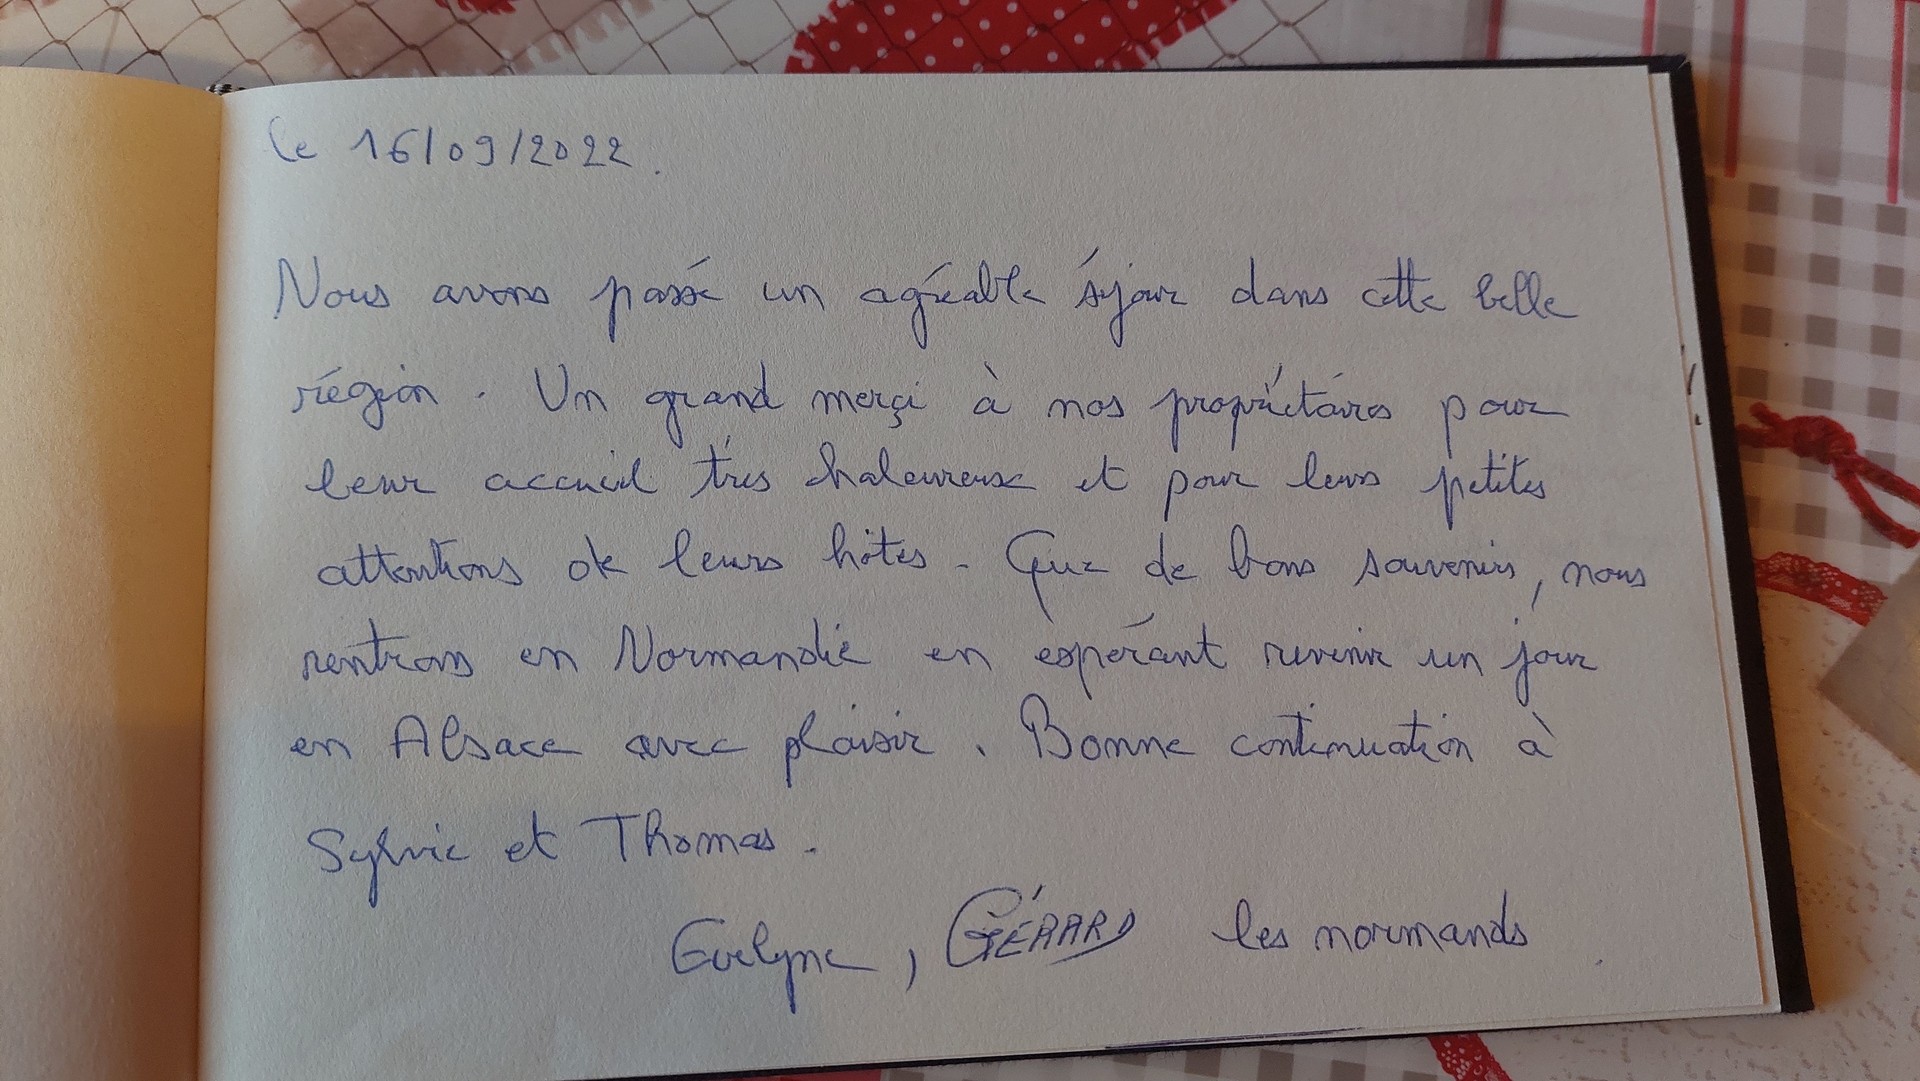 le 16/09/2022.
Nous avons passé un agréable séjour dans cette belle
région. Un grand merçi à nos propriétaires pour
leur accueil très chaleureux et pour leurs petites
attentions de leurs hôtes. Que de bons souvenirs, nous
rentrons en Normandie en espérant revenir un jour
en Alsace avec plaisir. Bonne continuation à
Sylvie et Thomas.
Evelyne, GÉRARD les normands.